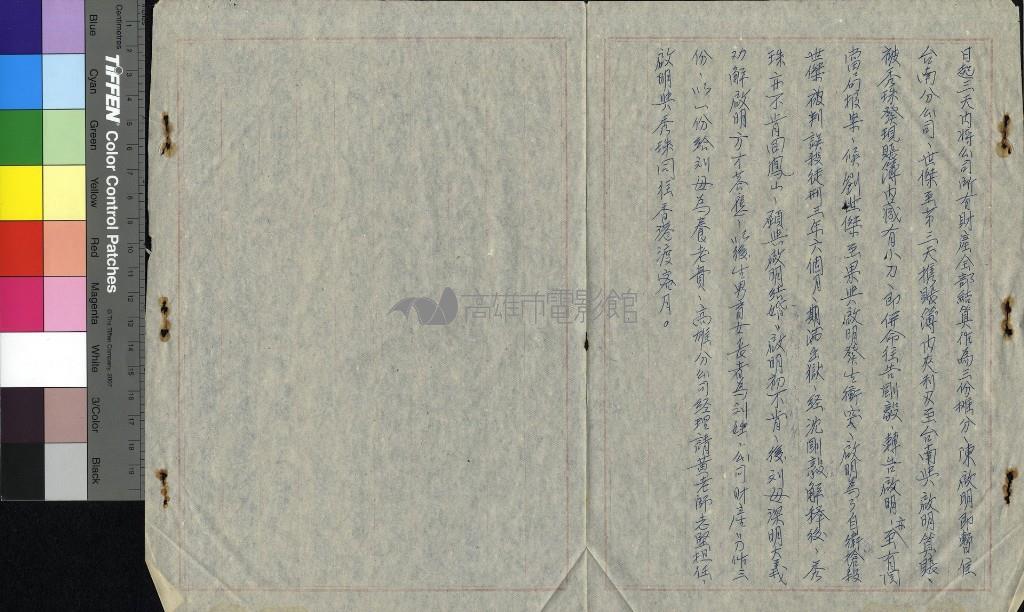 日起三天內將公司所有財產全部結算作為三份攤分、陳啟明即暫住
台南分公司、世傑至第三天攜賬簿內夾利刃至台南與啟明算賬、
被秀珠發現賬簿內藏有小刀、即併命往告剛毅、轉告啟明、並有向
當局報案、候劉世傑至果與啟明發生衝突、啟明為了自衛槍殺
世傑被判誤殺徒刑三年六個月、期滿出獄、經沈剛毅解釋後、秀
珠亦不肯回鳳山、願與啟明結婚、啟明初不肯、後刘母深明大義
功解啟明方才荅應、以後生男育女長者為刘姓、公司財產另作三
份、以一份給刘母為養老費、高雄分公司経理請黃老師志堅担任、
啟明與秀珠同往香港渡蜜月。
高雄市電影館
TIFFEN Color Control Patches
© The Tiffen Company, 2007
Centimetres
Blue
Cyan
Green
Yellow
Red
Magenta
White
3/Color
Black
1 2 3 4 5 6 7 8 9 10 11 12 13 14 15 16 17 18 19